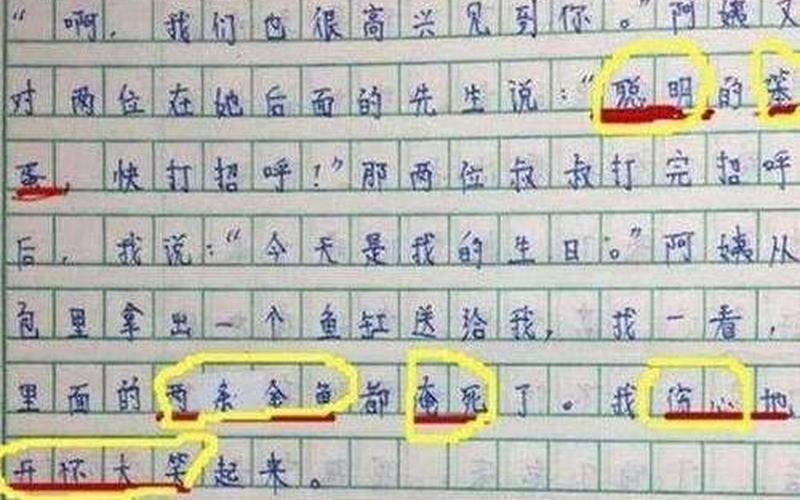 “啊,我们也很高兴见到你。”阿姨又
对两位在她后面的先生说:“聪明的笨
蛋,快打招呼!”那两位叔叔打完招呼
后,我说:“今天是我的生日。”阿姨从
包里拿出一个鱼缸送给我,我一看,
里面的两条金鱼都淹死了。我伤心地
开怀大笑起来。